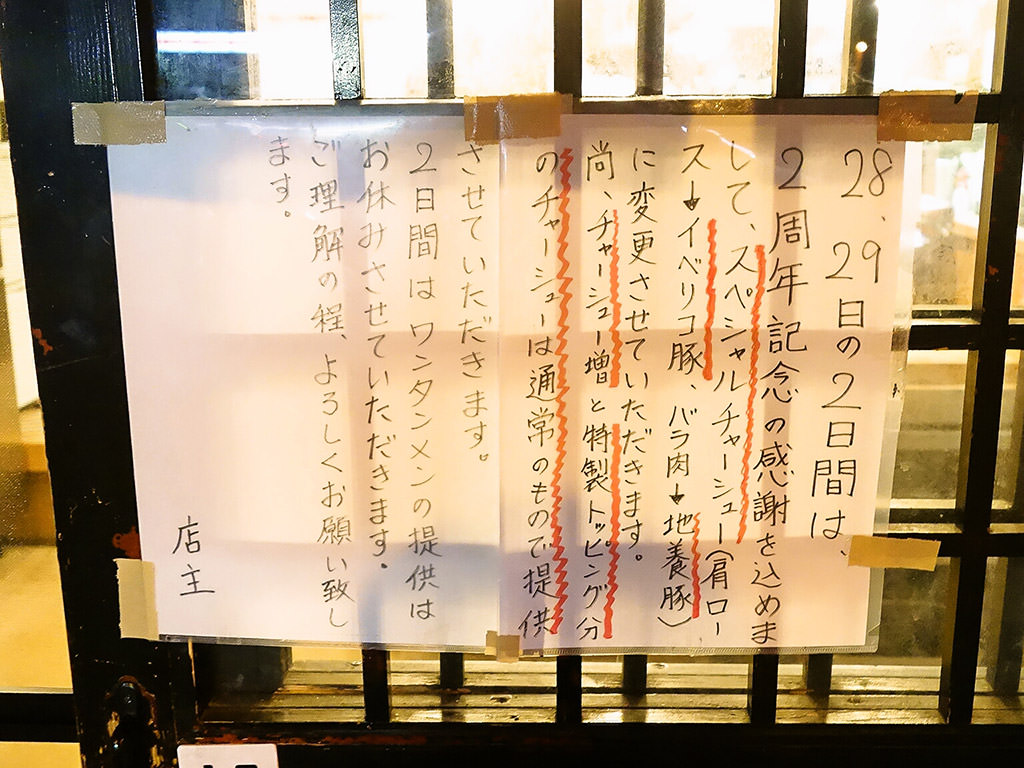 28、29日の2日間は、
2周年記念の感謝を込めま
して、スペシャルチャーシュー(肩ロー
ス→イベリコ豚、バラ肉→地養豚)
に変更させていただきます。
尚、チャーシュー増と特製トッピング分
のチャーシューは通常のもので提供
させていただきます。
2日間はワンタンメンの提供は
お休みさせていただきます。
ご理解の程、よろしくお願い致し
ます。
店主